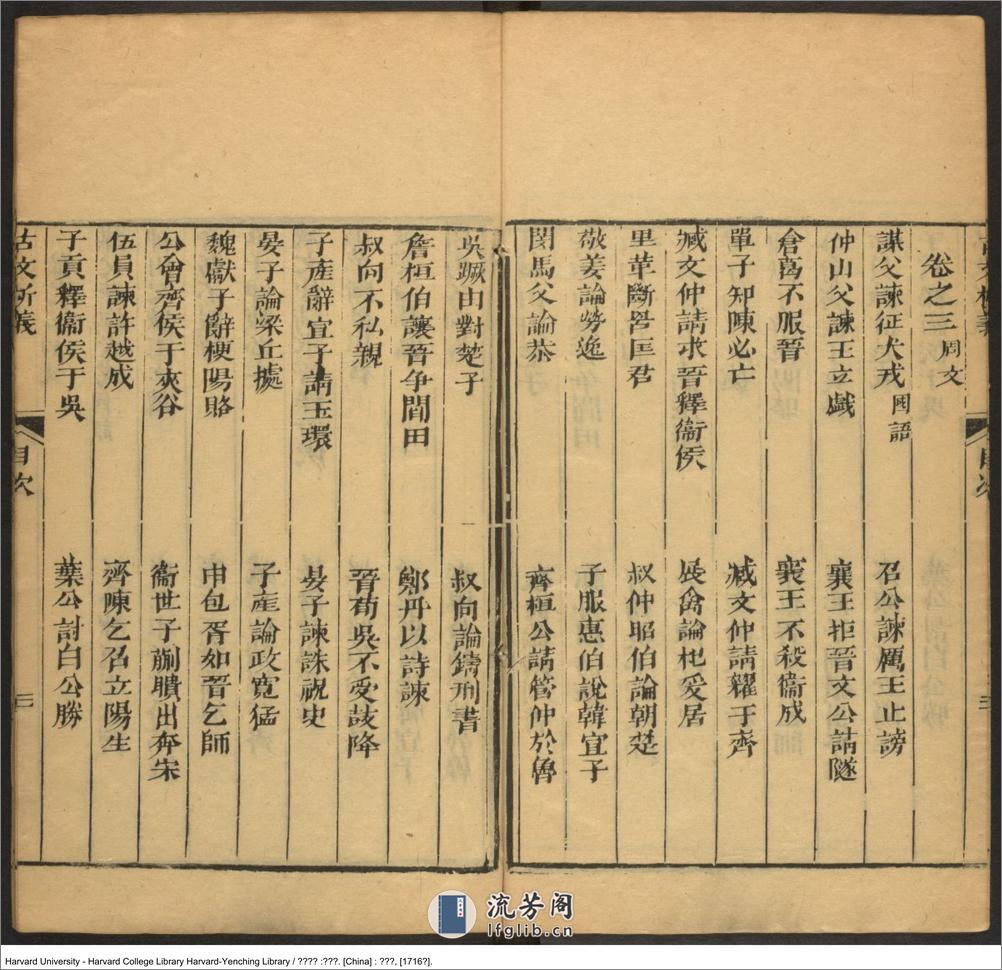 卷之三 周文
謀父諫征犬戎 囯語 召公諫厲王止謗
仲山父諫王立戲 襄王拒晉文公請隧
倉葛不服晉 襄王不殺衞成
單子知陳必亡 臧文仲請糴于齊
臧文仲請求晉釋衞侯 展禽論祀爰居
里革斷罟匡君 叔仲昭伯論朝楚
敬姜論勞逸 子服惠伯說韓宣子
閔馬父論恭 齊桓公請管仲於魯
吳蹶由對楚子 叔向論鑄刑書
詹桓伯讓晉爭閻田 鄭丹以詩諫
叔向不私親 晉荀吳不受鼓降
子產辭宣子請玉環 晏子諫誅祝史
晏子論梁丘據 子產論政寬猛
魏獻子辭梗陽賂 申包胥如晉乞師
公會齊侯于夾谷 衞世子蒯聵出奔宋
伍員諫許越成 齊陳乞召立陽生
子貢釋衞侯于吳 葉公討白公勝
古文析義 目次 二
流芳阁
lfglib.cn
Harvard University - Harvard College Library Harvard-Yenching Library / ???? :???. [China] : ???, [1716?].